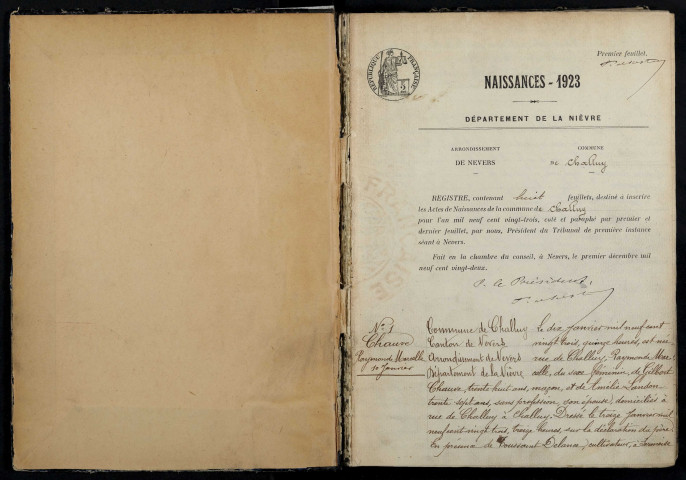 Premier feuillet.
RÉPUBLIQUE FRANÇAISE
NAISSANCES - 1923
DÉPARTEMENT DE LA NIÈVRE
ARRONDISSEMENT
DE NEVERS
COMMUNE
DE Challuy
REGISTRE, contenant huit feuillets, destiné à inscrire
les Actes de Naissances de la commune de Challuy
pour l'an mil neuf cent vingt-trois, coté et paraphé par premier et
dernier feuillet, par nous, Président du Tribunal de première instance
séant à Nevers.
Fait en la chambre du conseil, à Nevers, le premier décembre mil
neuf cent vingt-deux.
P. le Président,
N° 1
Chauve
Raymonde Marcelle
10 Janvier
Commune de Challuy
Canton de Nevers
Arrondissement de Nevers
Département de la Nièvre
Le dix Janvier mil neuf cent
vingt trois, quinze heures, est née
rue de Challuy, Raymonde Mar-
celle, du sexe féminin, de Gilbert
Chauve, trente huit ans, maçon, et de Amélie Landon
trente sept ans, sans profession, son épouse, domiciliés à
rue de Challuy à Challuy. Dressé le treize Janvier mil
neuf cent vingt trois, treize heures, sur la déclaration du père.
En présence de Toussaint Delaume, cultivateur, à